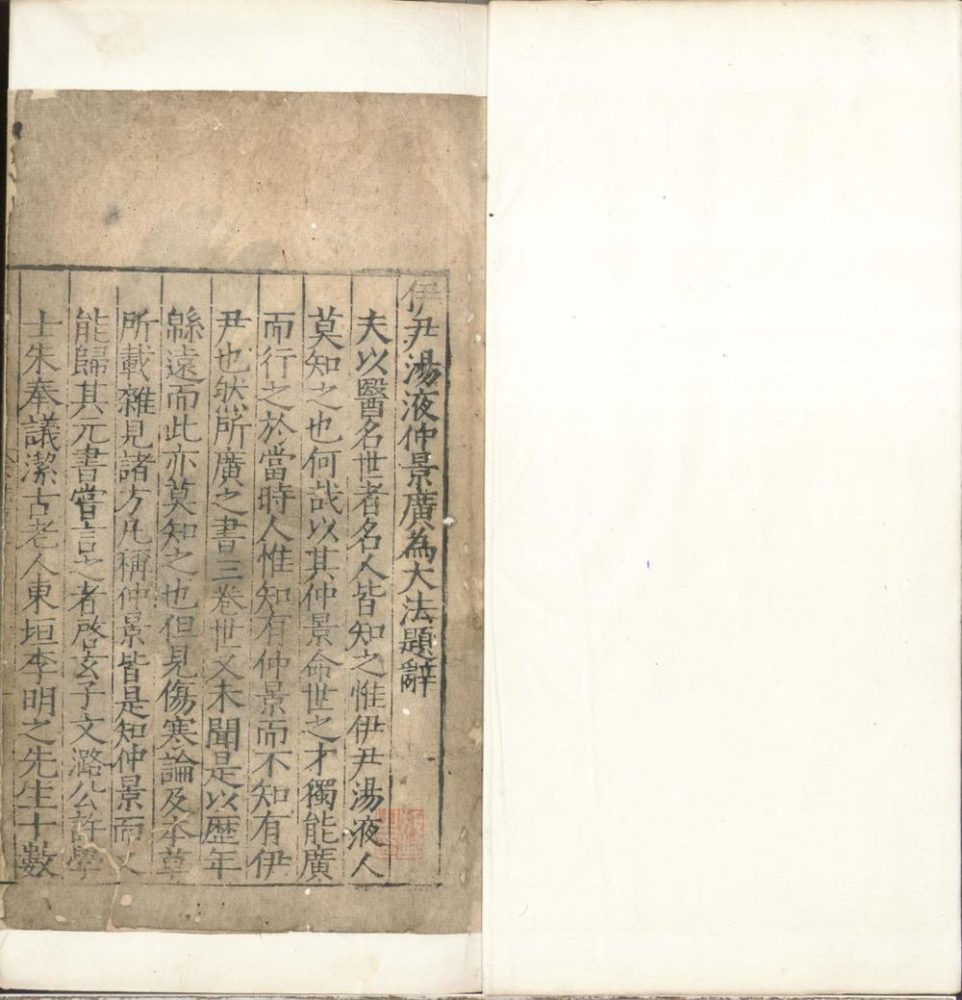 伊尹湯液仲景廣為大法題辭
夫以醫名世者名人皆知之惟伊尹湯液人
莫知之也何哉以其仲景命世之才獨能廣
而行之於當時人惟知有仲景而不知有伊
尹也然所廣之書三卷世又未聞是以歴年
緜遠而此亦莫知之也但見傷寒論及本草
所載雜見諸方凡稱仲景皆是知仲景而
能歸其元書嘗言之者啓玄子文潞公許學
士朱奉議潔古老人東垣李明之先生十數